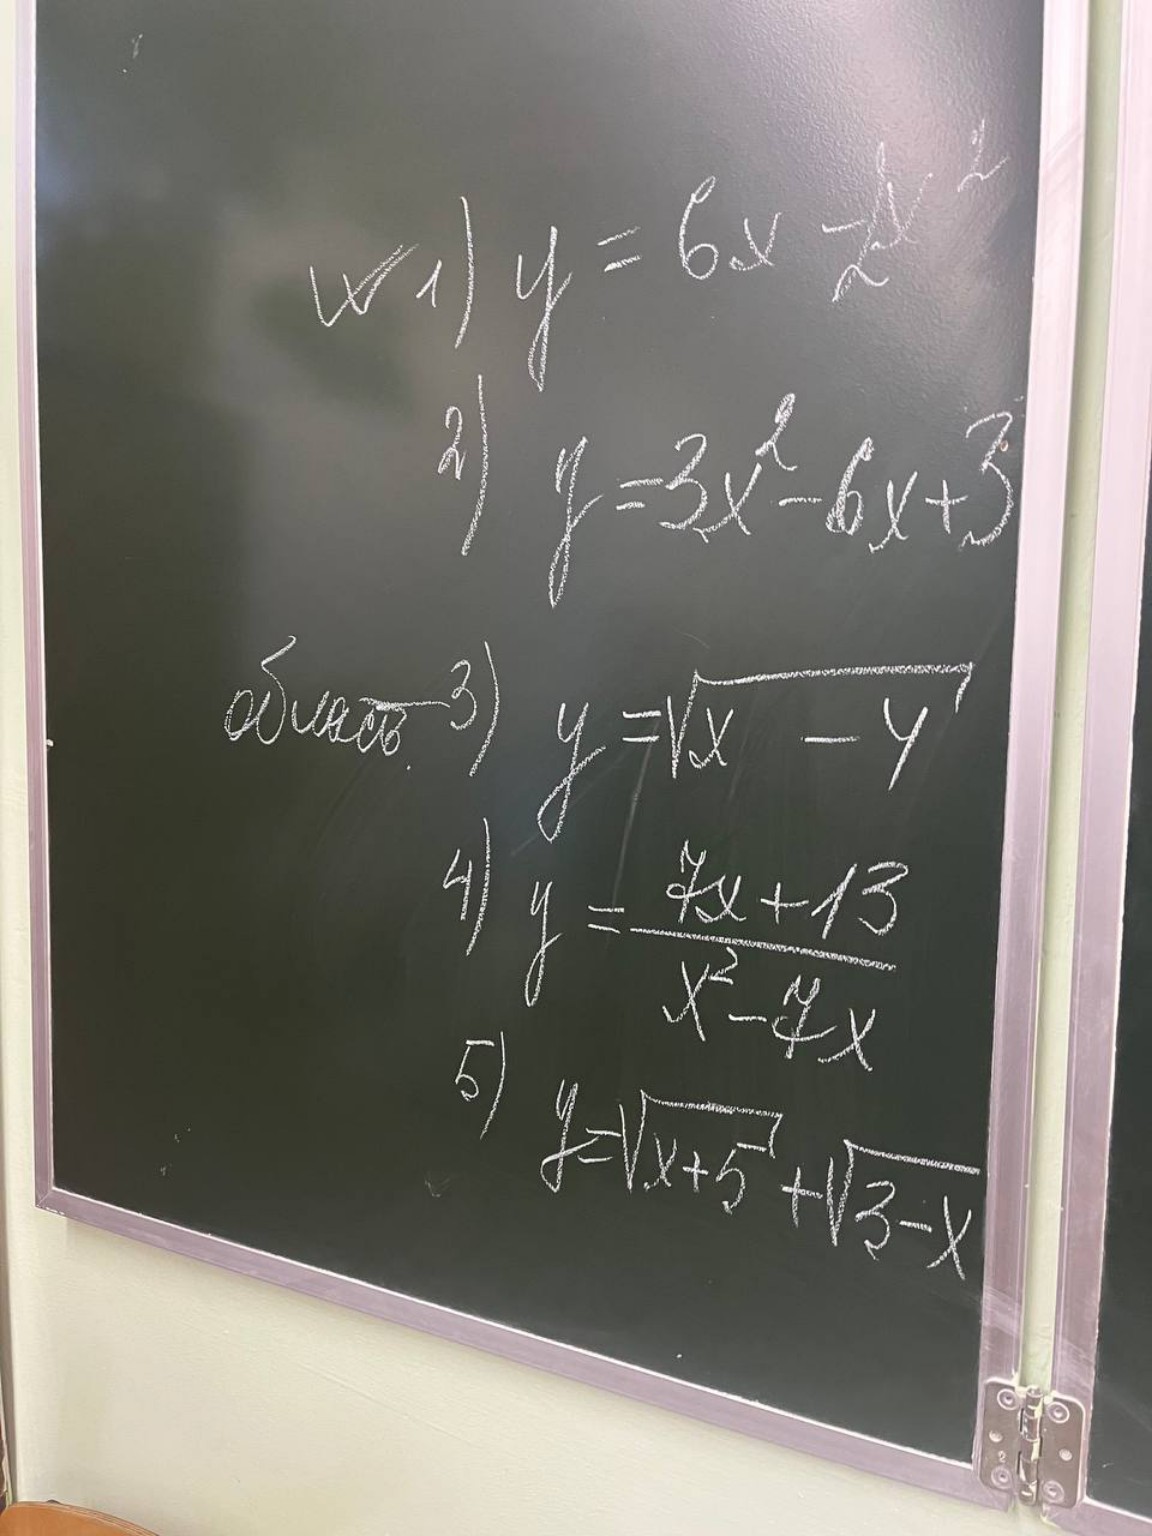 1) y = 6x - 2x²
2) y = 3x² - 6x + 3
область 3) y = √(x - 4)
4) y = (7x + 13)/(x² - 7x)
5) y = √(x + 5) + √(3 - x)